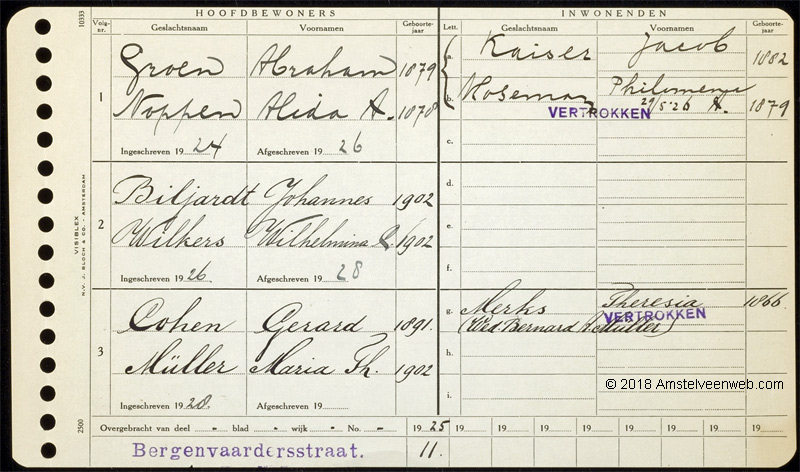 HOOFDBEWONERS
INWONENDEN
Volg-nr.
Geslachtsnaam
Voornamen
Geboorte-jaar
Lett.
Geslachtsnaam
Voornamen
Geboorte-jaar
1
Groen Abraham 1879
Noppen Alida A. 1878
Ingeschreven 1924 Afgeschreven 1926
a. Kaiser Jacob 1882
b. Hoseman Philomena
29/5-26 A. 1879
VERTROKKEN
c.
2
Biljardt Johannes 1902
Wilkers Wilhelmina C. 1902
Ingeschreven 1926. Afgeschreven 1928
d.
e.
f.
3
Cohen Gerard 1891.
Müller Maria Th. 1902
Ingeschreven 1928. Afgeschreven 19
g. Merks Theresia 1866
(Wed. Bernard A. Müller)
VERTROKKEN
h.
i.
© 2018 Amstelveenweb.com
Overgebracht van deel " blad " wijk " No. " 1925 19 19 19 19 19 19 19 19
Bergenvaardersstraat. 11.
10333
VISIBLEX
N.V. J. BLOCH & CO. - AMSTERDAM
2500